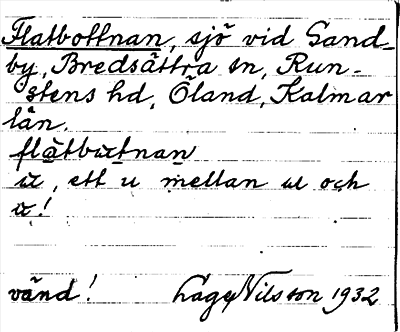 Flatbottnan, sjö vid Sand-
by, Bredsättra sn, Run-
stens hd, Öland, Kalmar
län.
flatbutnan
u, ett u mellan u och
!
vänd! Lage Nilsson 1932